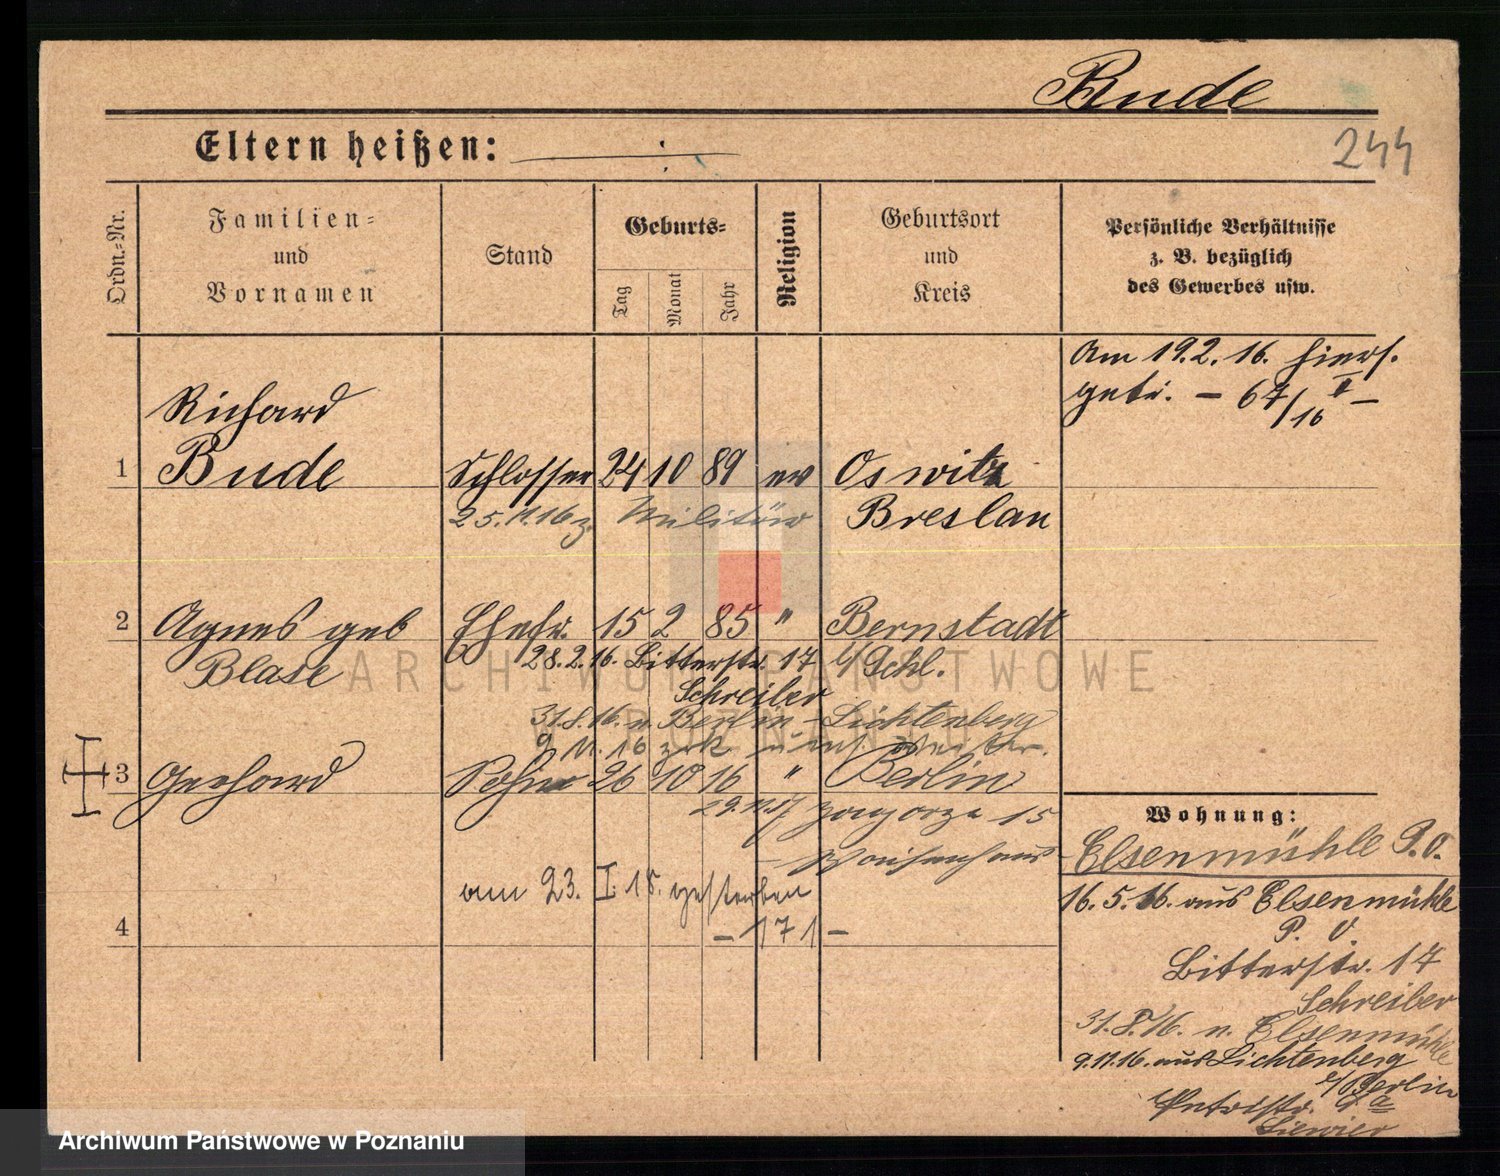 Bude
244
Eltern heißen:
Ordn.-Nr.
Familien-
und
Vornamen
Stand
Geburts-
Tag
Monat
Jahr
Religion
Geburtsort
und
Kreis
Persönliche Verhältnisse
z. B. bezüglich
des Gewerbes usw.
Am 19.2.16. hiers.
getr. – 67/16 II –
Richard
1 Bude Schlosser 24 10 89 ev Oswitz
25.11.16 z. Militär Breslau
2 Agnes geb Ehefr. 15 2 85 " Bernstadt
Blase 28.2.16. Bitterstr. 17 i/Schl.
Schreiber
31.8.16. n. Berlin-Lichtenberg
9.11.16 zrk
3 Gerhard Sohn 26 10 16 " Berlin
29.11.17 Zagorze 15
Waisenhaus
am 23. I. 18. gestorben
– 171 –
4
Wohnung:
Elsenmühle P.O.
16.5.16. aus Elsenmühle
P. O.
Bitterstr. 17
Schreiber
31.8.16. n. Elsenmühle
9.11.16. aus Lichtenberg
b/Berlin
Petristr. 9a
ARCHIWUM PAŃSTWOWE
W POZNANIU
Archiwum Państwowe w Poznaniu